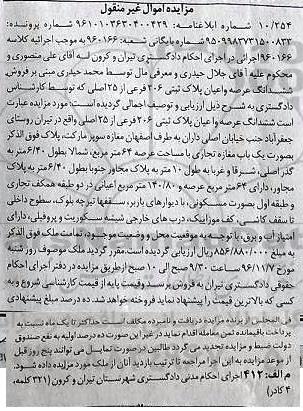 مزایده اموال غیر منقول
۱۰/۲۵۴ شماره ابلاغنامه: ۹۶۱۰۱۰۳۶۳۰۴۰۰۴۲۹ شماره پرونده:
۹۵۰۹۹۸۳۷۳۱۵۰۰۸۳۲ شماره بایگانی شعبه: ۹۶۰۱۶۶ به موجب اجرائیه کلاسه
۹۶۰۱۶۶ اجرائی در اجرای احکام دادگستری تیران و کرون له آقای علی منصوری و
محکوم علیه آقای جلال حیدری و معرفی مال توسط محمد حیدری مبنی بر فروش
ششدانگ عرصه و اعیان پلاک ثبتی ۲۰۶ فرعی از ۲۵ اصلی که توسط کارشناس
دادگستری به شرح ذیل ارزیابی و توصیف اجمالی گردیده است: مورد مزایده عبارت
است ششدانگ عرصه و اعیان پلاک ثبتی ۲۰۶ فرعی از ۲۵ اصلی واقع در تیران روستای
جعفرآباد جنب خیابان اصلی داران به طرف اصفهان مغازه سوپر مارکت، پلاک فوق الذکر
بصورت یک باب مغازه تجاری با مساحت عرصه ۶۴ متر مربع، شمالا بطول ۶/۴۰ به
گذر اصلی، شرقا و غربا به طول ۱۰ متر به پلاک مجاور جنوبا بطول ۶/۴۰ متر به پلاک
مجاور، دارای ۶۴ متر مربع عرصه و ۱۴۰/۸۰ متر مربع اعیانی در دو طبقه همکف تجاری
و طبقه اول بصورت مسکونی، با دیوارهای باربر، سقفها تیرچه بلوک، سطوح داخلی
تا سقف کاشی، کف موزاییک، درب های خارجی شیشه سکوریت و پروفیلی، دارای
امتیاز آب و برق، با توجه به موقعیت محل و وضعیت موجود، تمامت ملک فوق الذکر
به مبلغ ۸۵۶/۸۸۰/۰۰۰ ریال ارزیابی گردیده است. مقرر گردید ملک موصوف روز شنبه
۹۶/۱۱/۷ مورخ ساعت ۹/۳۰ صبح الی ۱۰ صبح ازطریق مزایده در دفتر اجرای احکام
حقوقی دادگستری تیران به فروش برسد وقیمت پایه از قیمت کارشناسی شروع و به
کسی که بالاترین قیمت را پیشنهاد نماید فروخته خواهد شد. ده درصد مبلغ پیشنهادی
فی المجلس از برنده مزایده دریافت و نامبرده مکلف است حداکثر تا یک ماه نسبت به
پرداخت باقیمانده ثمن معامله اقدام نماید در غیر این صورت ده درصد اولیه به نفع صندوق
دولت ضبط و مزایده تجدید می گردد طالبین در صورت تمایل می توانند پنج روز قبل
از موعد مزایده به این اجرا مراجعه تا ترتیب بازدید آنان از ملک مورد مزایده داده شود.
م الف: ۴۱۲ اجرای احکام مدنی دادگستری شهرستان تیران و کرون (۳۲۱ کلمه،
۴ کادر)